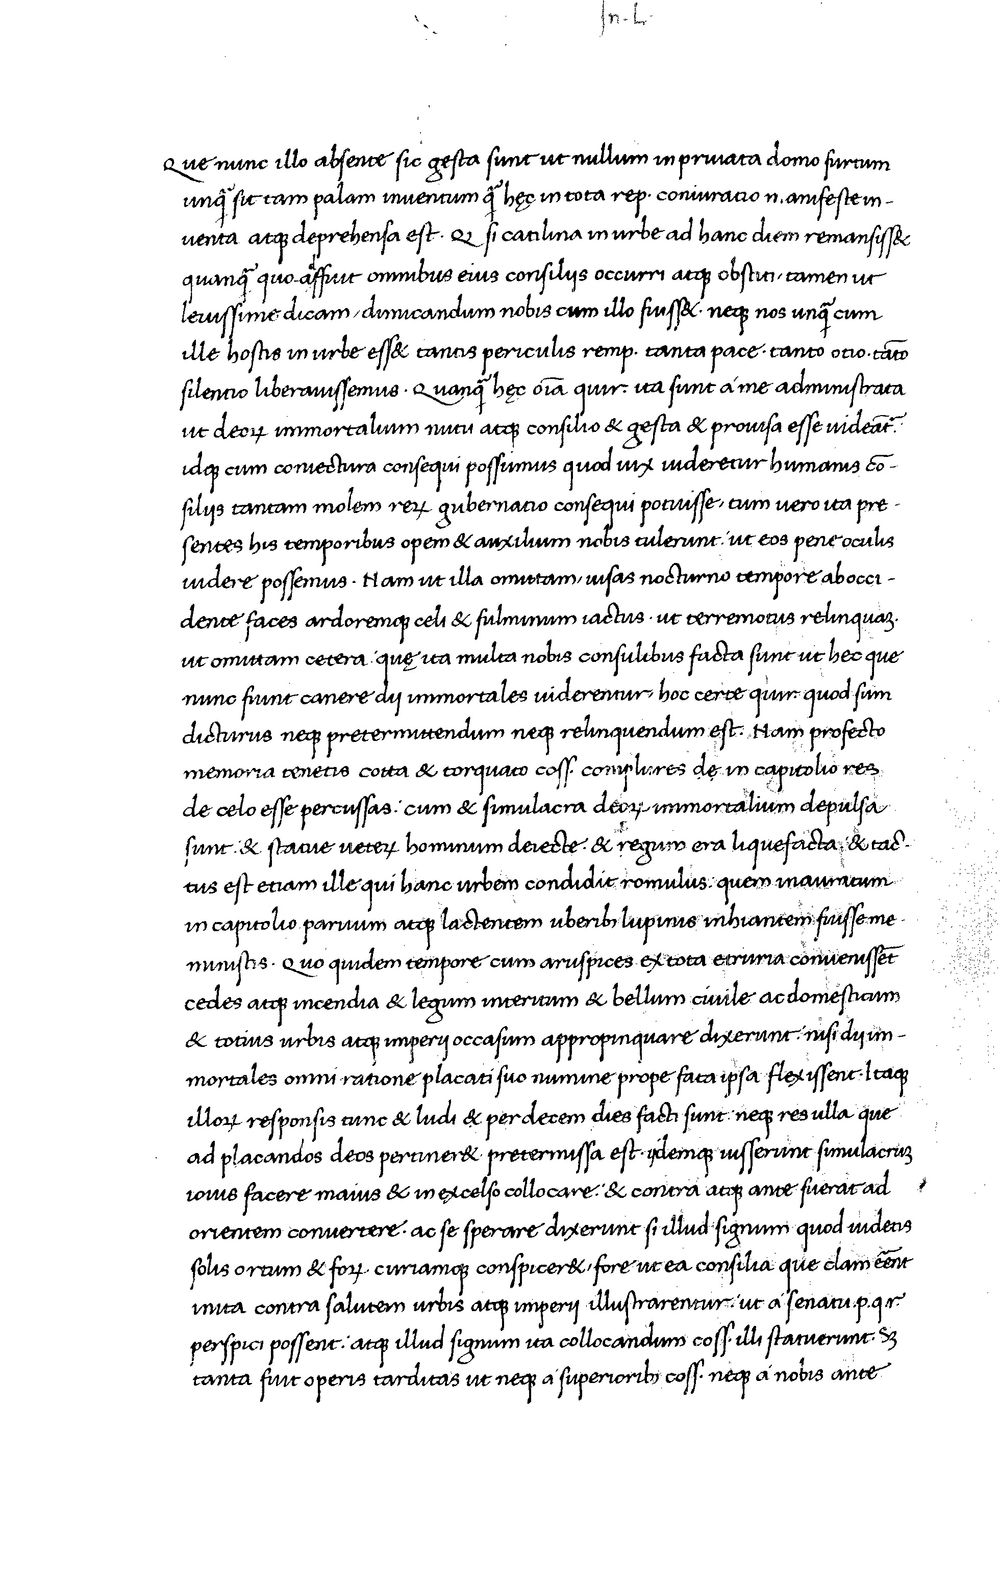 In. L.
Que nunc illo absente sic gesta sunt ut nullum in priuata domo furtum
unq̃ sit tam palam inuentum q̃ hęc in tota rep. coniuratio manifeste in-
uenta atq; deprehensa est. Q si catilina in urbe ad hanc diem remansiss&
quanq̃ quo affuit omnibus eius consiliis occurri atq; obstiti, tamen ut
leuissime dicam, dimicandum nobis cum illo fuiss&. neq; nos unq̃ cum
ille hostis in urbe ess& tantis periculis remp. tanta pace. tanto otio. tāto
silentio liberauissemus. Quanq̃ hęc oīa quir. ita sunt a me administrata
ut deoꝝ immortalium nutu atq; consilio & gesta & prouisa esse uideāt̃.
idq; cum coniectura consequi possumus quod uix uideretur humanis cō-
siliis tantam molem reꝝ gubernatio consequi potuisse, tum uero ita pre-
sentes his temporibus opem & auxilium nobis tulerunt. ut eos pene oculis
uidere possemus. Nam ut illa omittam, uisas nocturno tempore ab occi-
dente faces ardoremq; celi & fulminum iactus. ut terremotus relinquaꝫ.
ut omittam cetera. quę ita multa nobis consulibus facta sunt ut hec que
nunc fiunt canere dii immortales uiderentur, hoc certe quir. quod sum
dicturus neq; pretermittendum neq; relinquendum est. Nam profecto
memoria tenetis cotta & torquato coss. complures dę in capitolio res
de celo esse percussas. cum & simulacra deoꝝ immortalium depulsa
sunt. & statue ueteꝝ hominum deiecte. & regum era liquefacta. & tac-
tus est etiam ille qui hanc urbem condidit romulus. quem inauratum
in capitolio paruum atq; lactentem uberibꝫ lupinis inhiantem fuisse me-
ministis. Quo quidem tempore cum aruspices ex tota etruria conuenissēt
cedes atq; incendia & legum interitum & bellum ciuile ac domesticum
& totius urbis atq; imperii occasum appropinquare dixerunt. nisi dii im-
mortales omni ratione placati suo numine prope fata ipsa flexissent. Itaq;
illoꝝ responsis tunc & ludi & per decem dies facti sunt. neq; res ulla que
ad placandos deos pertiner& pretermissa est. iidemq; iusserunt simulacruꝫ
iouis facere maius & in excelso collocare. & contra atq; ante fuerat ad
orientem conuertere. ac se sperare dixerunt si illud signum quod uidetis
solis ortum & foꝝ. curiamq; conspicer&, fore ut ea consilia que clam eēnt
inita contra salutem urbis atq; imperii illustrarentur. ut a senatu. p. q. r.
perspici possent. atq; illud signum ita collocandum coss. illi statuerunt. Sꝫ
tanta fuit operis tarditas ut neq; a superioribꝫ coss. neq; a nobis ante